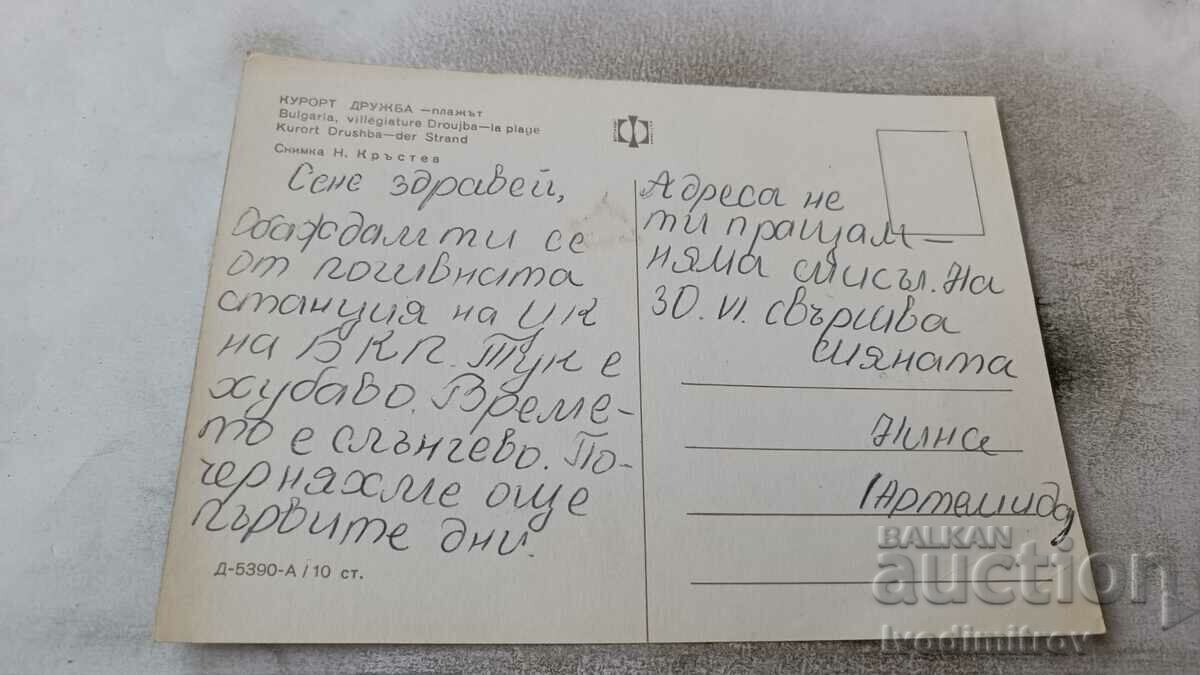 КУРОРТ ДРУЖБА —плажът
Bulgaria, villégiature Droujba—la plage
Kurort Drushba—der Strand
Снимка Н. Кръстев
Сене здравей,
Обаждам ти се
от почивната
станция на ЦК
на БКП. Тук е
хубаво. Време-
то е слънчево. По-
черняхме още
първите дни.
Д-5390-А / 10 ст.
Адреса не
ти пращам —
няма смисъл. На
30. VI. свършва
смяната
/Артемида
BALKAN
auction
Ivodimitrov